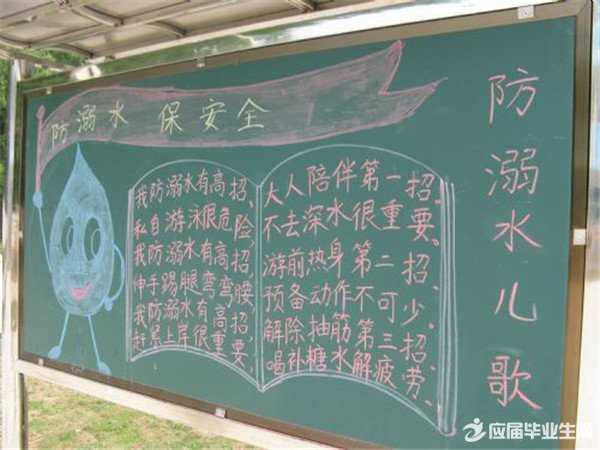 防溺水 保安全
我防溺水有高招、
私自游泳很危险、
我防溺水有高招、
伸手踢腿弯弯腰、
我防溺水有高招、
赶紧上岸很重要、
大人陪伴第一招、
不去深水很重要、
游前热身第二招、
预备动作不可少、
解除抽筋第三招、
喝补糖水解疲劳、
防溺水儿歌
应届毕业生网